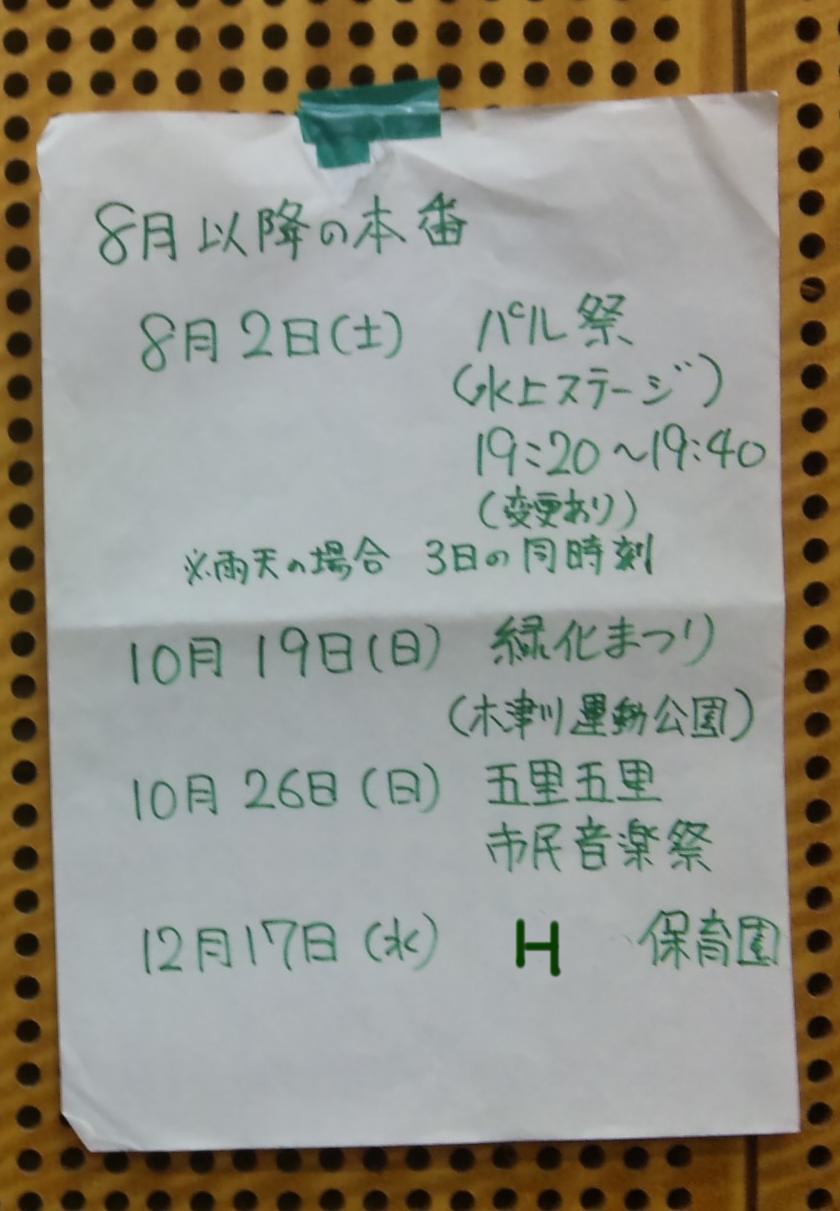 8月以降の本番
8月2日(土) パル祭
(水上ステージ)
19:20〜19:40
(変更あり)
※雨天の場合 3日の同時刻
10月19日(日) 緑化まつり
(木津川運動公園)
10月26日(日) 五里五里
市民音楽祭
12月17日(水) H 保育園